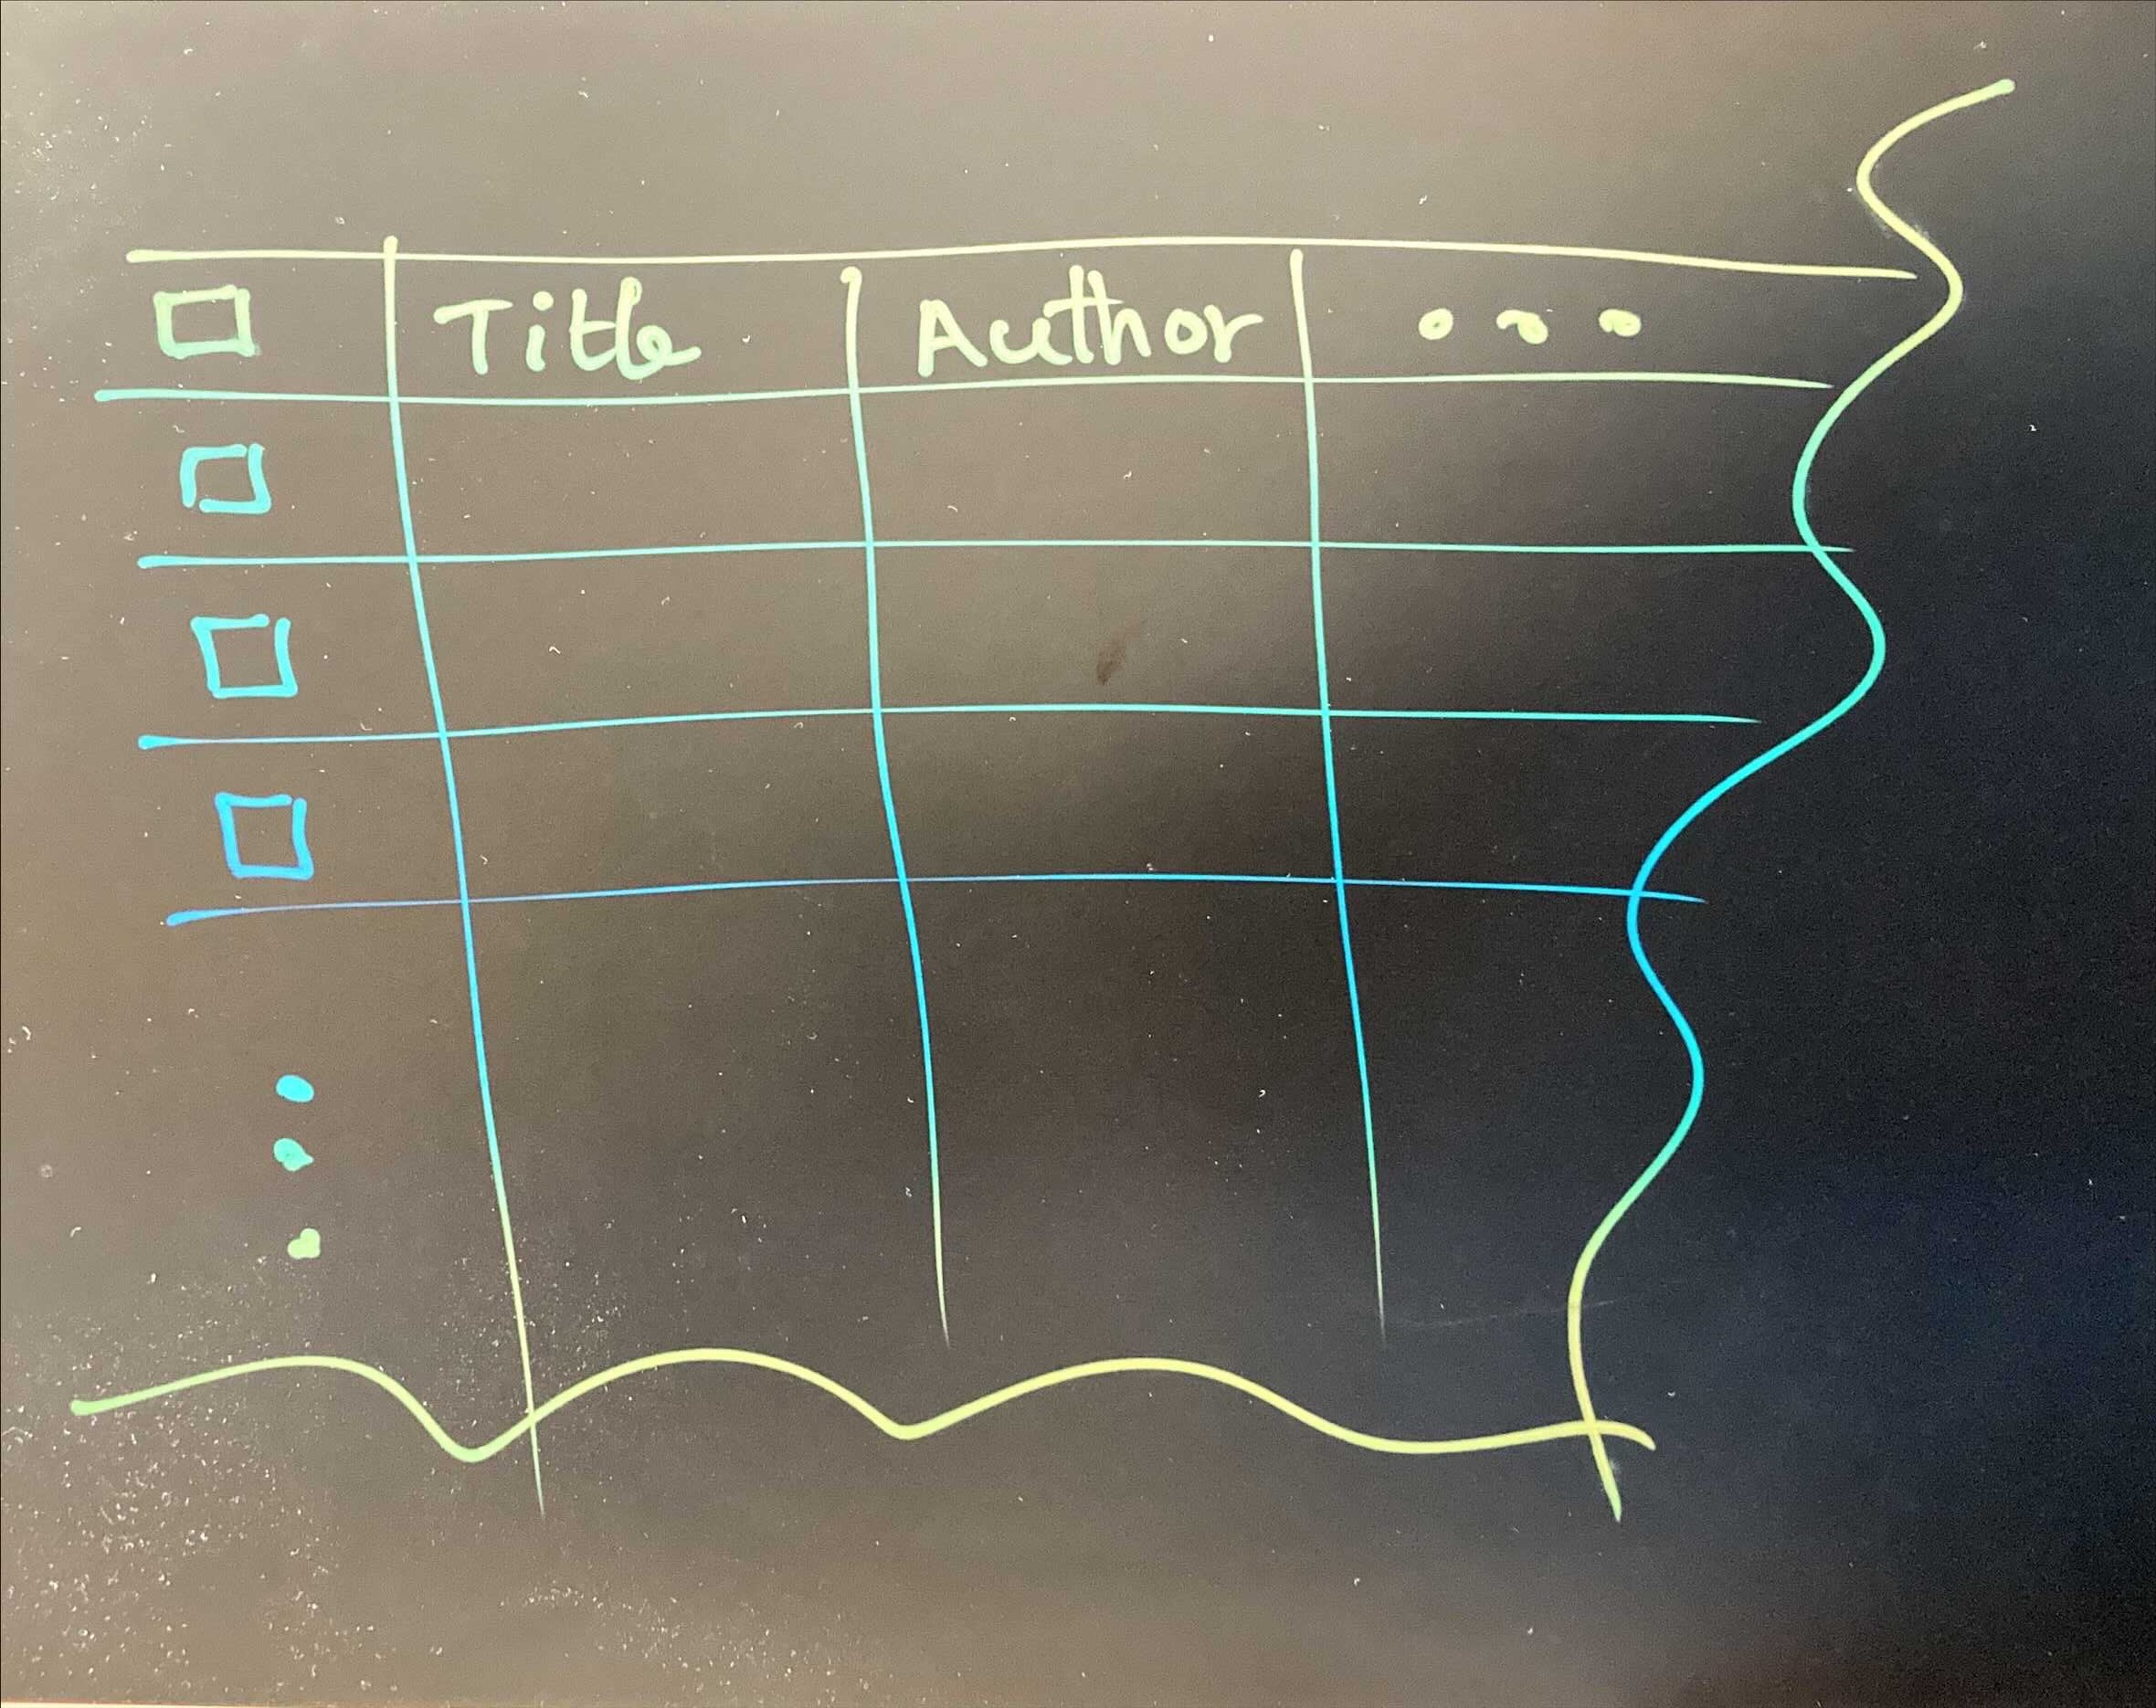 Title Author ...